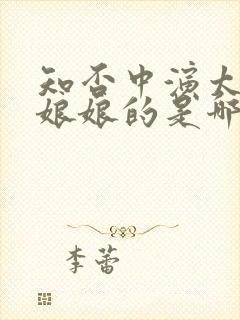 知否中演大
娘娘的是哪
李蕾